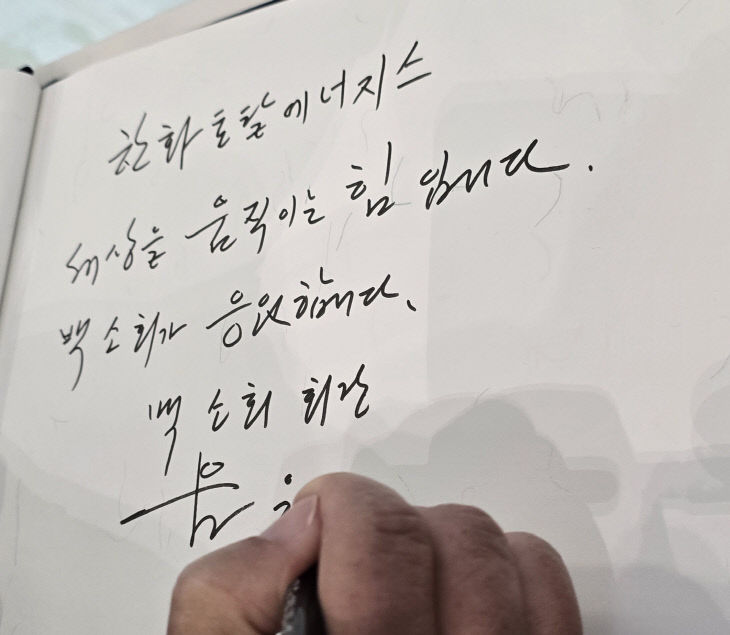 한화토탈에너지스
세상을 움직이는 힘입니다.
백소회가 응원합니다.
백소회 회장